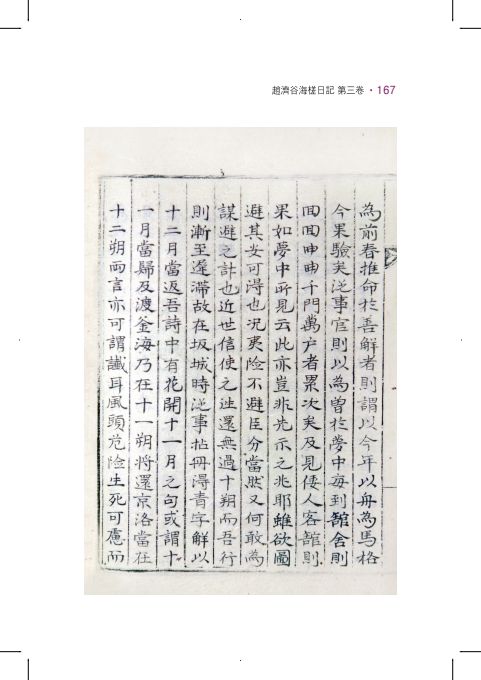 趙濟谷海槎日記 第三卷 · 167
為前春推命於善解者則謂以今年以舟為馬格
今果驗矣從事官則以為曾於夢中每到舘舍則
回回曲曲千門萬户者累次矣及見倭人客舘則
果如夢中所見云此亦豈非先示之兆耶雖欲圖
避其安可得也况夷險不避臣分當然又何敢為
謀避之計也近世信使之往還無過十朔而吾行
則漸至遲滯故在坂城時從事拈冊得青字解以
十二月當返吾詩中有花開十一月之句或謂十
一月當歸及渡釜海乃在十一朔將還京洛當在
十二朔兩言亦可謂讖耳風頭危險生死可慮而